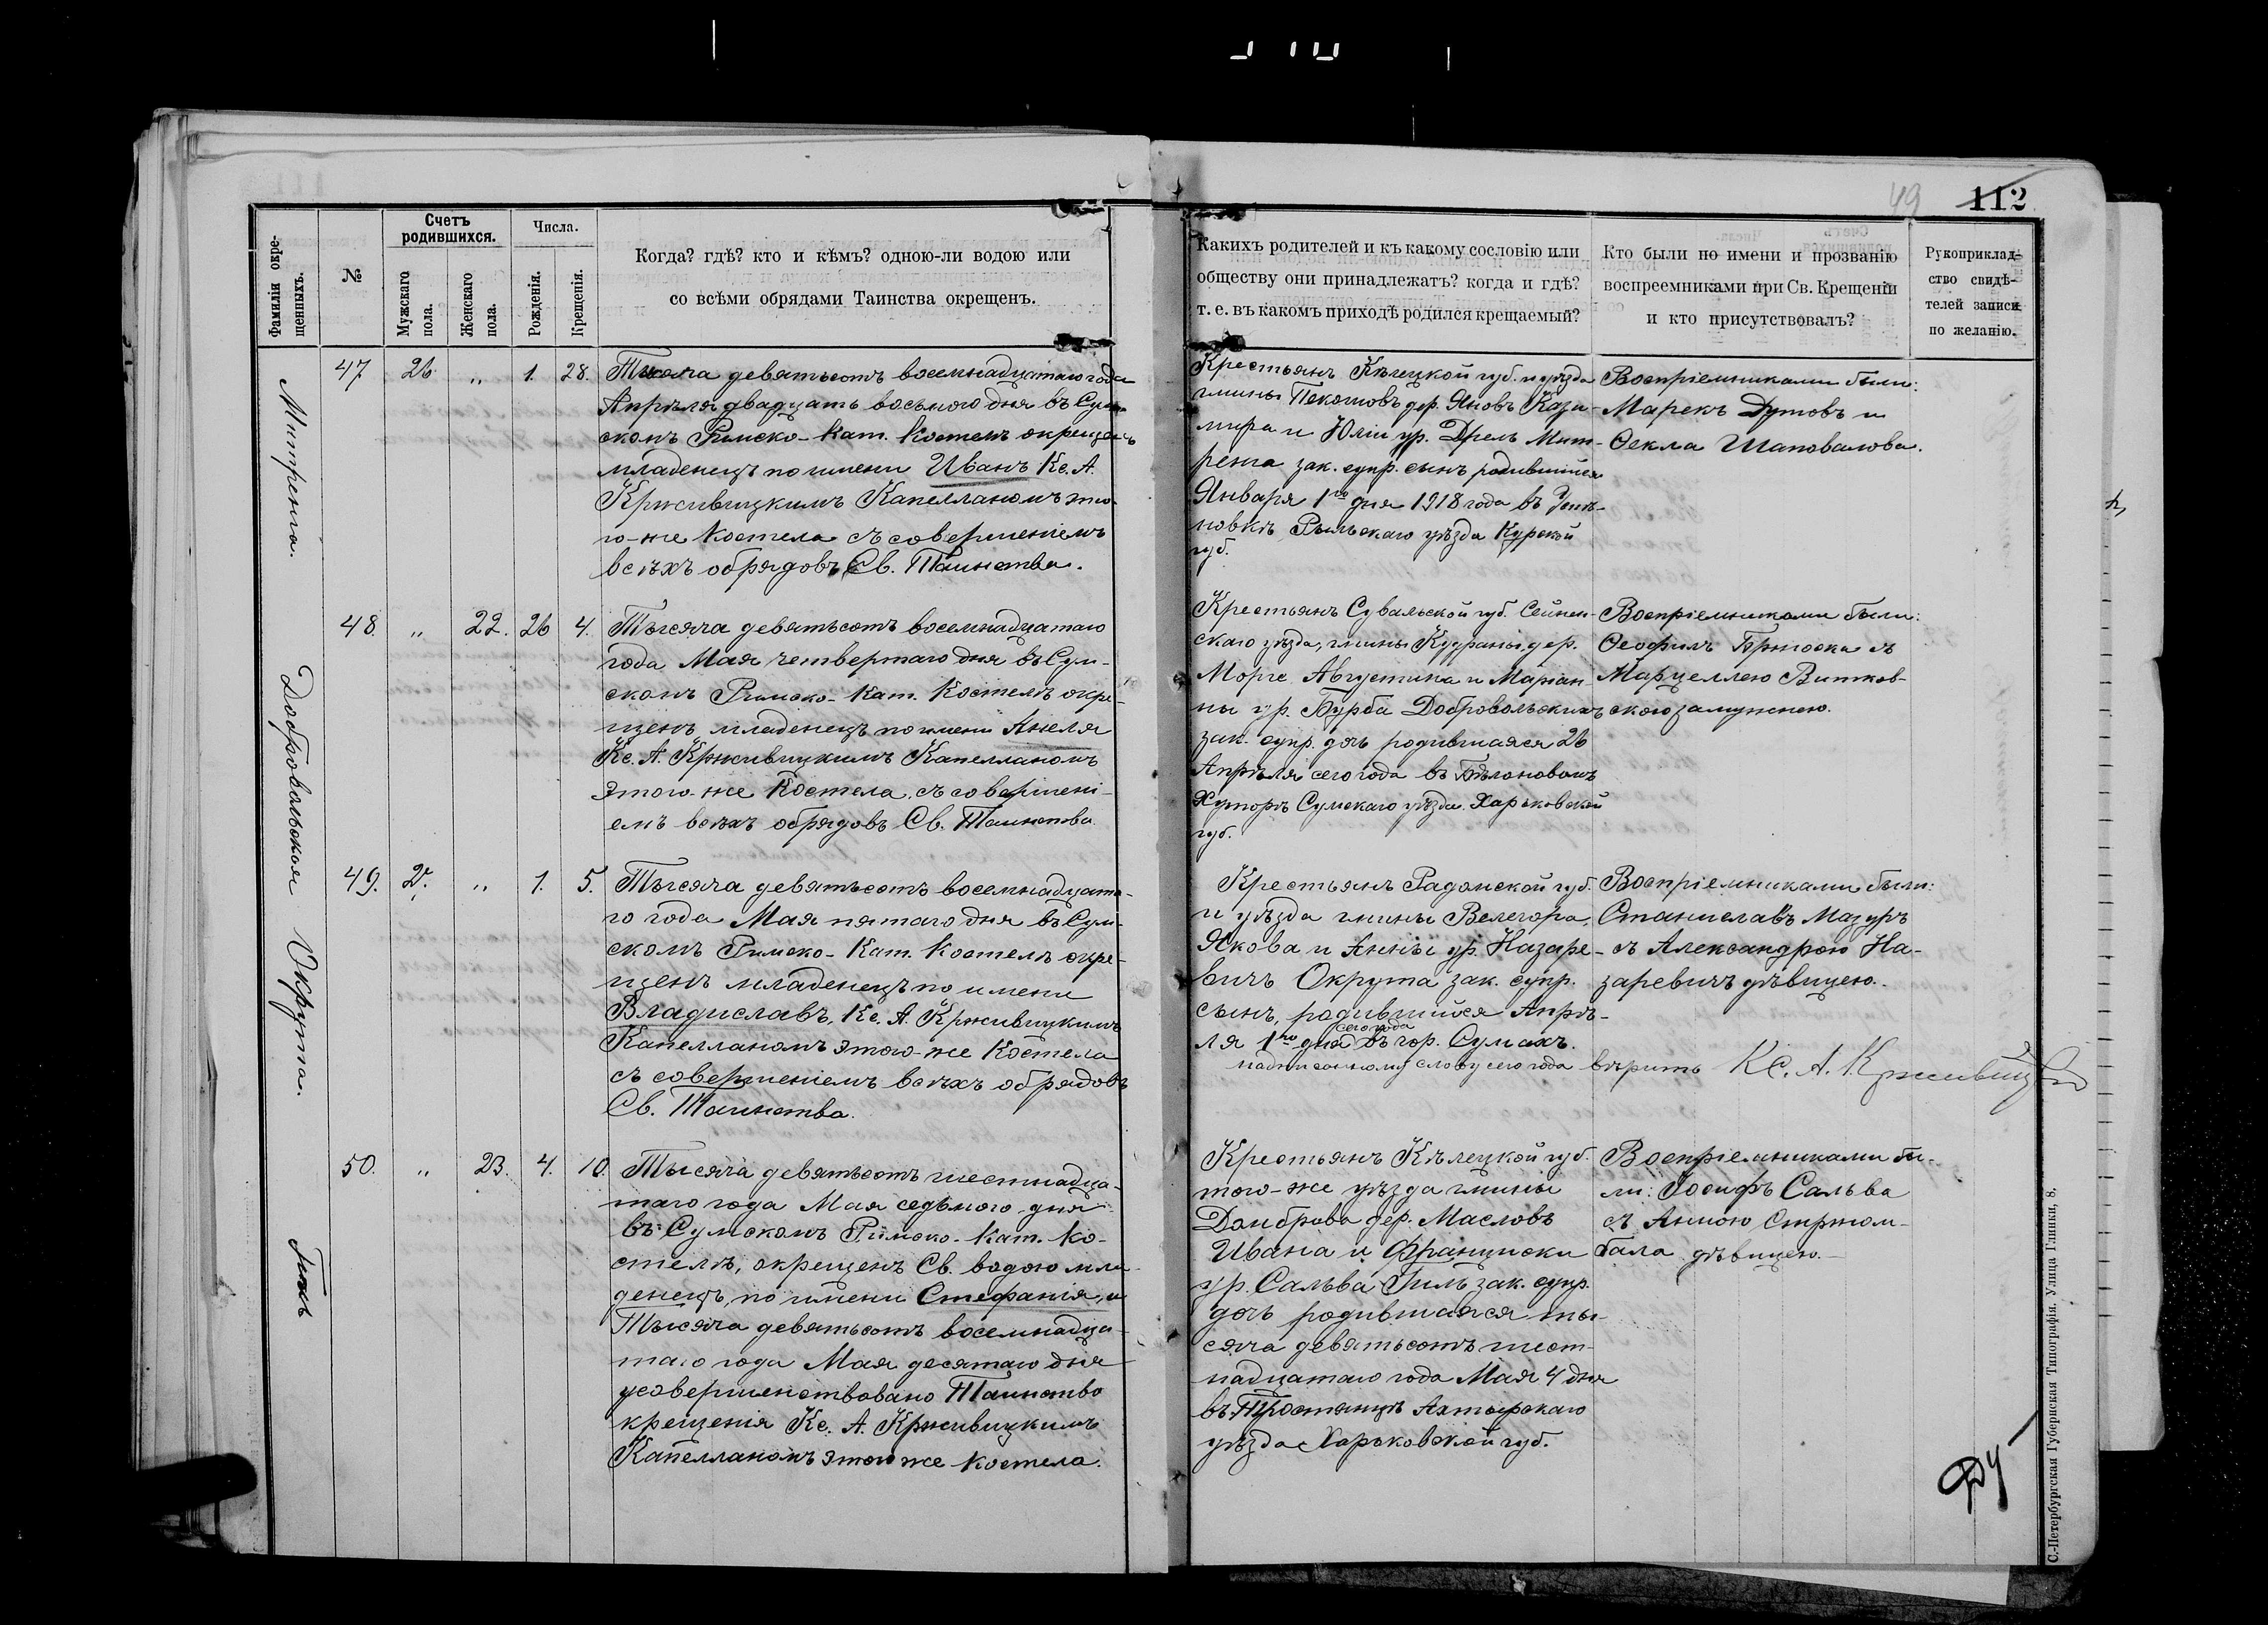 49 112
Фамиліи окре-
щенныхъ.
№
Счетъ
родившихся.
Мужскаго
пола.
Женскаго
пола.
Числа.
Рожденія.
Крещенія.
Когда? гдѣ? кто и кѣмъ? одною-ли водою или
со всѣми обрядами Таинства окрещенъ.
Какихъ родителей и къ какому сословію или
обществу они принадлежатъ? когда и гдѣ?
т. е. въ какомъ приходѣ родился крещаемый?
Кто были по имени и прозванію
воспреемниками при Св. Крещеніи
и кто присутствовалъ?
Рукоприклад-
ство свидѣ-
телей записи
по желанію.
Митренга.
47 26 „ 1. 28.
Тысяча девятьсотъ восемнадцатаго года
Апрѣля двадцать восьмого дня въ Сум-
скомъ Римско-Кат. Костелѣ окрещенъ
младенецъ по имени Иванъ Кс. А.
Крживицкимъ Капелланомъ это-
го-же Костела съ совершеніемъ
всѣхъ обрядовъ Св. Таинства.
Крестьянъ Кѣлецкой губ. и уѣзда
гмины дер. Яновъ Кази-
мира и Юліи ур. Дрель Мит-
ренга зак. супр. сынъ родившійся
Января 1го дня 1918 года въ
новкѣ Рыльскаго уѣзда Курской
губ.
Воспріемниками были:
Марекъ Дутовъ и
Ѳекла Шаповалова.
Добровольская
48. „ 22. 26 4.
Тысяча девятьсотъ восемнадцатаго
года Мая четвертаго дня въ Сум-
скомъ Римско-Кат. Костелѣ окре-
щенъ младенецъ по имени Анеля
Кс. А. Крживицкимъ Капелланомъ
этого-же Костела, съ совершені-
емъ всѣхъ обрядовъ Св. Таинства
Крестьянъ Сувальской губ. Сейнен-
скаго уѣзда, гмины Кудраны дер.
Морге Августина и Маріан-
ны ур. Бурба Добровольскихъ
зак. супр. дочь родившаяся 26
Апрѣля сего года въ
Хуторѣ Сумскаго уѣзда Харьковской
губ.
Воспріемниками были:
Ѳеофилъ Бржоска съ
Марцеллею Витков-
скою замужнею.
Округа.
49. 27. „ 1. 5.
Тысяча девятьсотъ восемнадцата-
го года Мая пятаго дня въ Сум-
скомъ Римско-Кат. Костелѣ окре-
щенъ младенецъ по имени
Владиславъ, Кс. А. Крживицкимъ
Капелланомъ этого-же Костела
съ совершеніемъ всѣхъ обрядовъ
Св. Таинства.
Крестьянъ Радомской губ.
и уѣзда гмины Велегора,
Якова и Анны ур. Назаре-
вичъ Округа зак. супр.
сынъ, родившійся Апрѣ-
сего года
ля 1го дня въ гор. Сумахъ.
надписанному слову сего года вѣрить Кс. А. Крживицкій
Воспріемниками были:
Станиславъ Мазуръ
съ Александрою На-
заревичъ дѣвицею.
Гиль
50. „ 23. 4. 10.
Тысяча девятьсотъ шестнадца-
таго года Мая седьмого дня
въ Сумскомъ Римско-Кат. Ко-
стелѣ, окрещенъ Св. водою мла-
денецъ, по имени Стефанія, и
Тысяча девятьсотъ восемнадца-
таго года Мая десятаго дня
усовершенствовано Таинство
крещенія Кс. А. Крживицкимъ
Капелланомъ этого же Костела.
Крестьянъ Кѣлецкой губ.
того-же уѣзда гмины
Домброва дер. Масловъ
Ивана и Францишки
ур. Сальва Гиль зак. супр.
дочь родившаяся ты-
сяча девятьсотъ шест-
надцатаго года Мая 4 дня
въ Тростянцѣ Ахтырскаго
уѣзда Харьковской губ.
Воспріемниками бы-
ли: Іосифъ Сальва
съ Анною Стржом-
бала дѣвицею.
С.-Петербургская Губернская Типографія. Улица Глинки, 8.